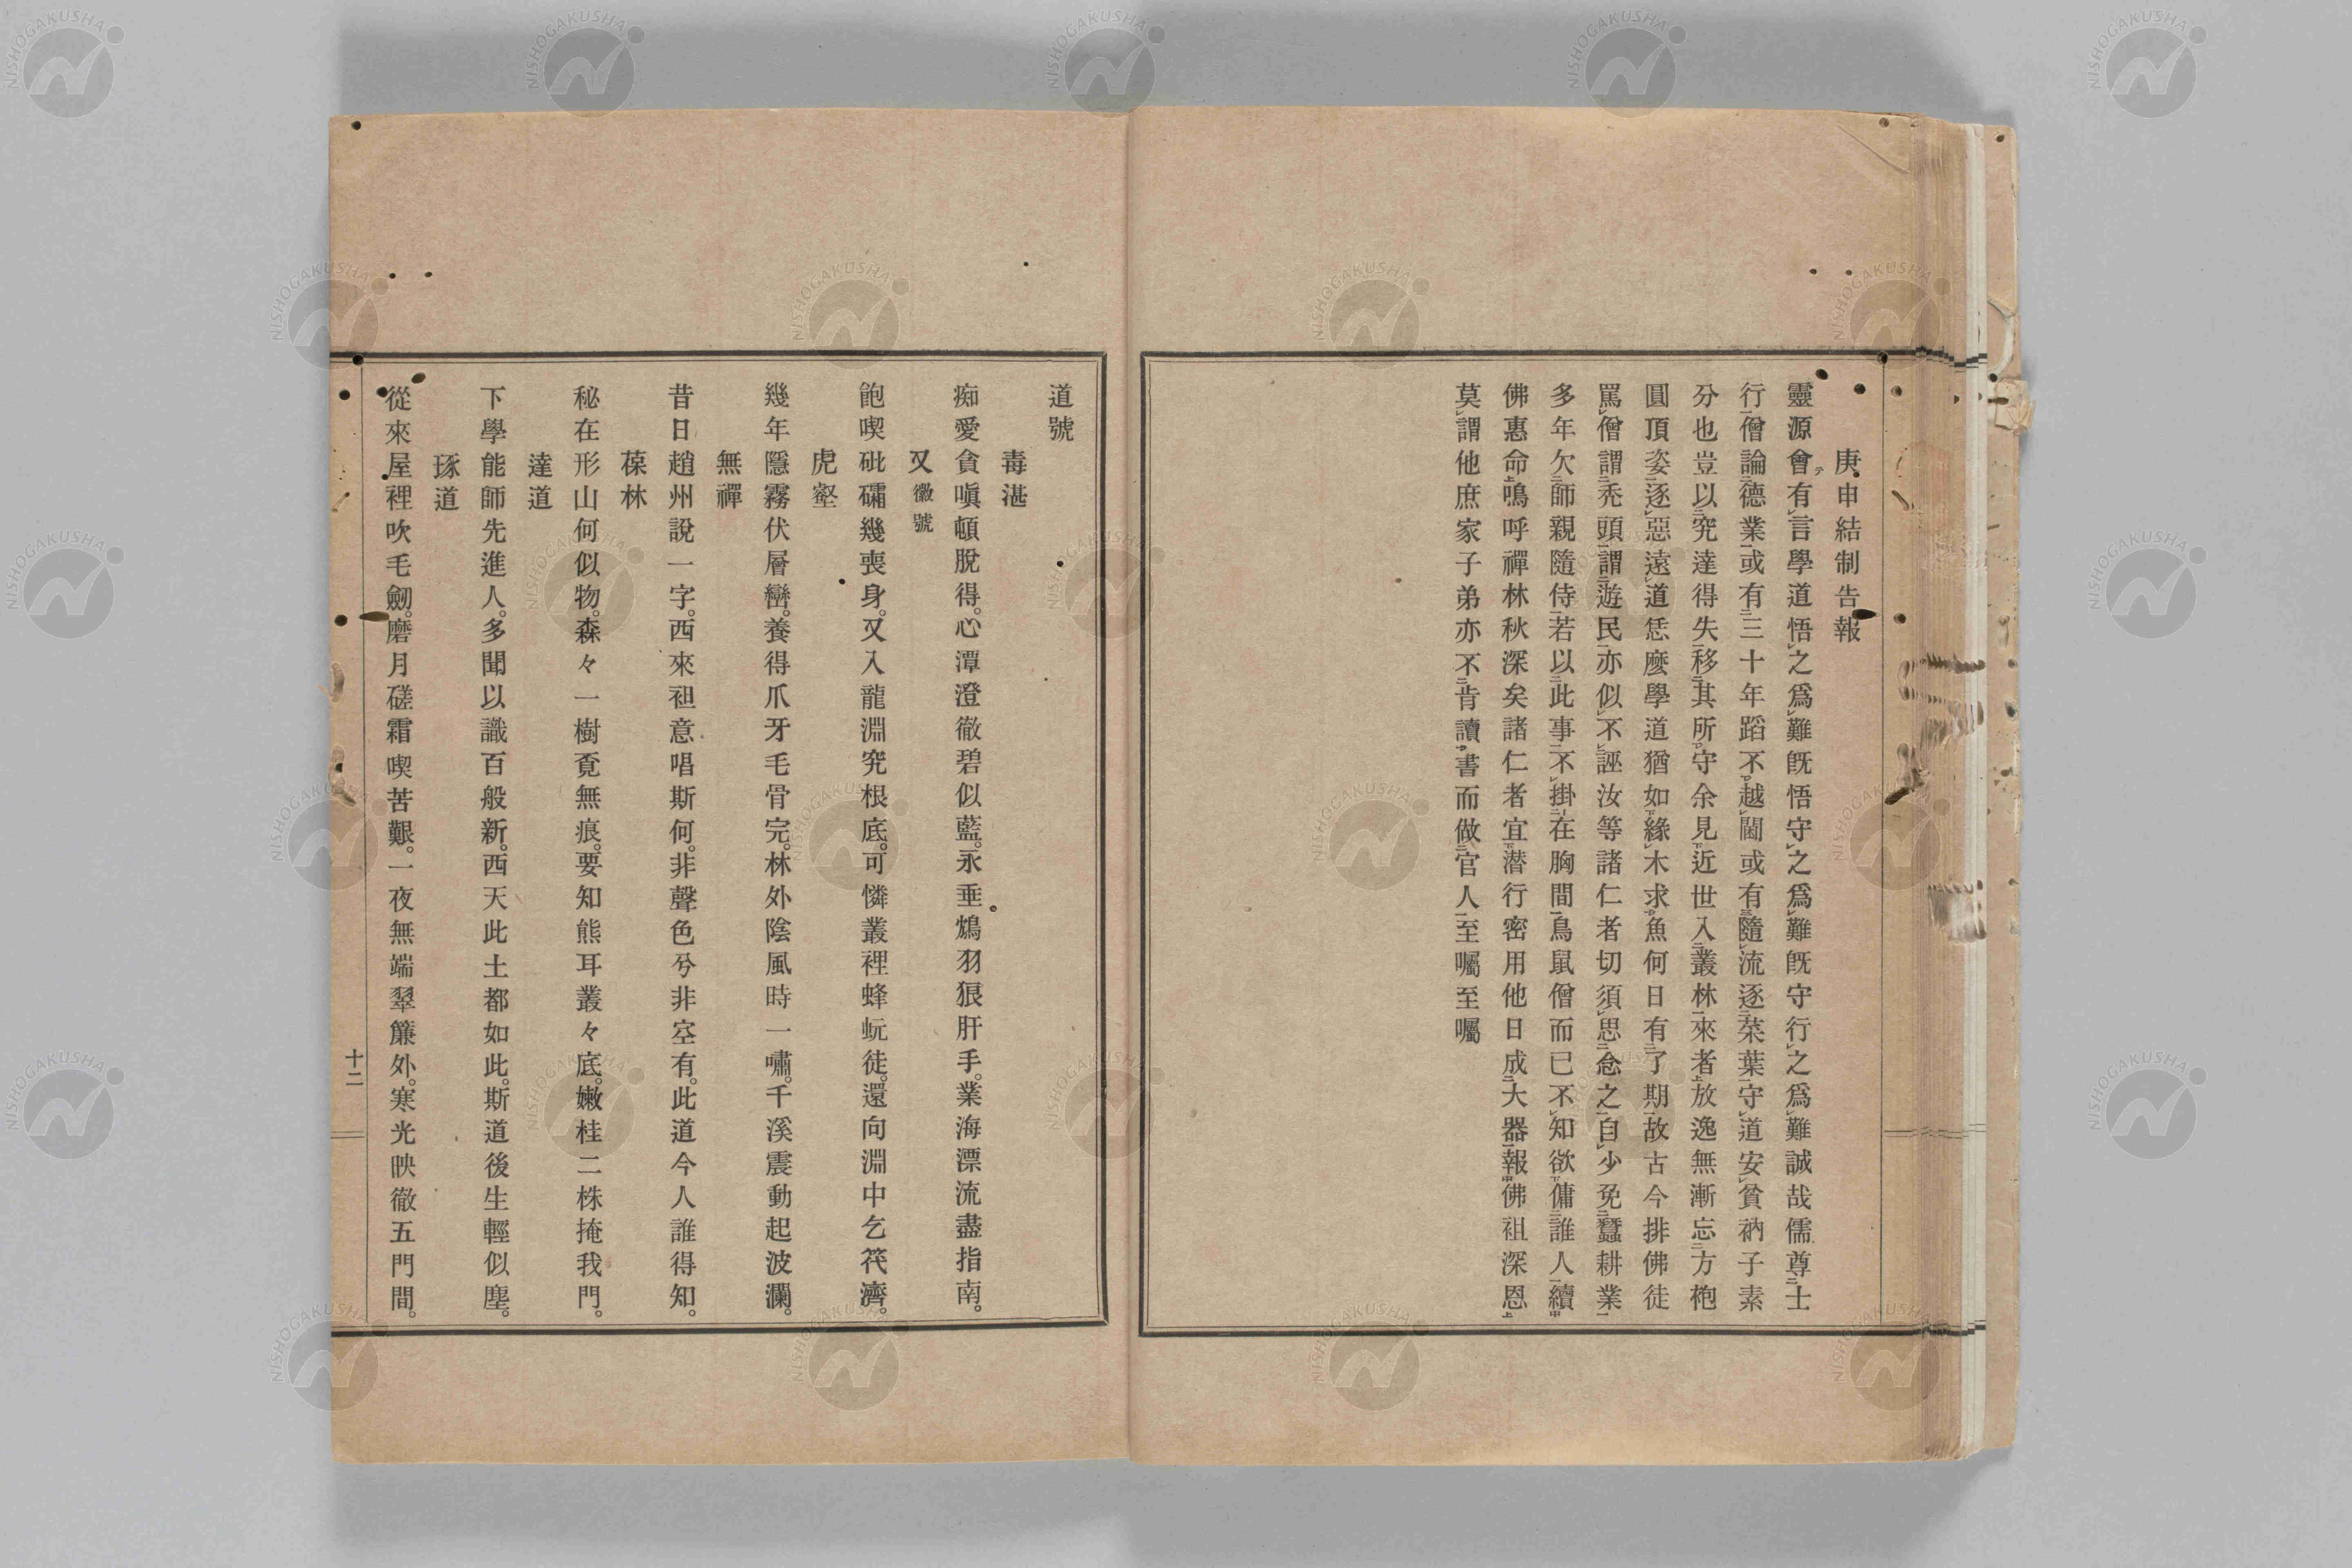 庚申結制告報
靈源會有言學道悟之爲難既悟守之爲難既守行之爲難誠哉儒尊士
行僧論德業或有三十年蹈不越閫或有隨流逐菜葉守道安貧衲子素
分也豈以究達得失移其所守余見近世入叢林來者放逸無漸忘方袍
圓頂姿逐惡遠道恁麼學道猶如緣木求魚何日有了期故古今排佛徒
罵僧謂禿頭謂遊民亦似不誣汝等諸仁者切須思念之自少免蠶耕業
多年欠師親隨侍若以此事不掛在胸間鳥鼠僧而已不知欲傭誰人續
佛惠命嗚呼禪林秋深矣諸仁者宜潛行密用他日成大器報佛祖深恩
莫謂他庶家子弟亦不肯讀書而做官人至囑至囑
道號
毒湛
痴愛貪嗔頓脫得。心潭澄徹碧似藍。永垂鴆羽狠肝手。業海漂流盡指南。
又 徽號
飽喫砒礵幾喪身。又入龍淵究根底。可憐叢裡蜂蚖徒。還向淵中乞筏濟。
虎壑
幾年隱霧伏層巒。養得爪牙毛骨完。林外陰風時一嘯。千溪震動起波瀾。
無禪
昔日趙州說一字。西來祖意唱斯何。非聲色兮非空有。此道今人誰得知。
葆林
秘在形山何似物。森々一樹覔無痕。要知熊耳叢々底。嫩桂二株掩我門。
達道
下學能師先進人。多聞以識百般新。西天此土都如此。斯道後生輕似塵。
琢道
從來屋裡吹毛劒。磨月磋霜喫苦艱。一夜無端翠簾外。寒光映徹五門間。
十二
NISHOGAKUSHA